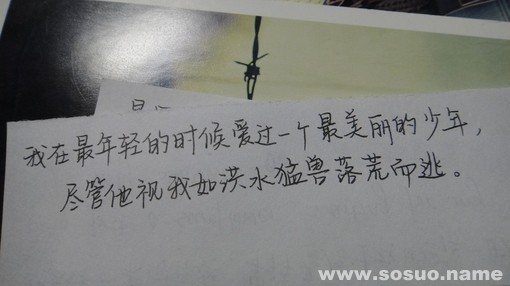 我在最年轻的时候爱过一个最美丽的少年，
尽管他视我如洪水猛兽落荒而逃。
www.sosuo.name